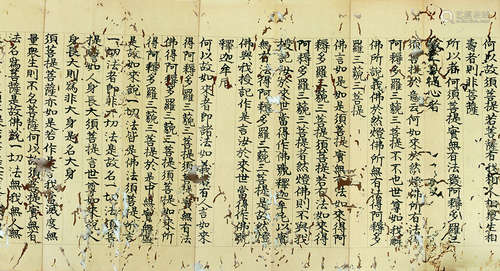 何以故須菩提若菩薩有我相人相眾生相
壽者則非菩薩
所以者何須菩提實無有法發阿耨多羅三
藐三菩提心者
須菩提於意云何如來於然燈佛所有法得
阿耨多羅三藐三菩提不不也世尊如我解
佛所說義佛於然燈佛所無有法得阿耨多
羅三藐三菩提
佛言如是如是須菩提實無有法如來得阿
耨多羅三藐三菩提須菩提若有法如來得
阿耨多羅三藐三菩提者然燈佛則不與我
授記汝於來世當得作佛號釋迦牟尼以實
無有法得阿耨多羅三藐三菩提是故然燈
佛與我授記作是言汝於來世當得作佛號
釋迦牟尼
何以故如來者即諸法如義若有人言如來
得阿耨多羅三藐三菩提須菩提實無有法
佛得阿耨多羅三藐三菩提須菩提如來所
得阿耨多羅三藐三菩提於是中無實無虛
是故如來說一切法皆是佛法須菩提所言
一切法者即非一切法是故名一切法須菩
提譬如人身長大須菩提言世尊如來說人
身長大則為非大身是名大身
須菩提菩薩亦如是若作是言我當滅度無
量眾生則不名菩薩何以故須菩提實無有
法名為菩薩是故佛說一切法無我無人無